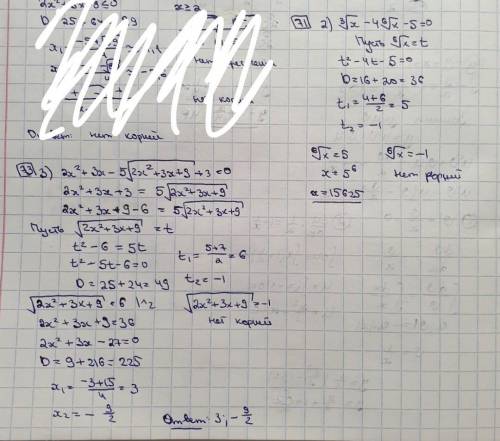 2x² + 3x
≤0
x≥2
D
25
9
x₁
нет
не корн
нет корней
71 2) ∛x - 4⁶√x - 5 = 0
Пусть ⁶√x = t
t² - 4t - 5 = 0
D = 16 + 20 = 36
t₁ = (4+6)/2 = 5
t₂ = -1
⁶√x = 5 ⁶√x = -1
x = 5⁶ нет
x = 15625
73 3) 2x² + 3x - 5√(2x² + 3x + 9) + 3 = 0
2x² + 3x + 3 = 5√(2x² + 3x + 9)
2x² + 3x + 9 - 6 = 5√(2x² + 3x + 9)
Пусть √(2x² + 3x + 9) = t
t² - 6 = 5t
t² - 5t - 6 = 0
D = 25 + 24 = 49
t₁ = (5+7)/2 = 6
t₂ = -1
√(2x² + 3x + 9) = 6 |^2 √(2x² + 3x + 9) = -1
2x² + 3x + 9 = 36 нет корней
2x² + 3x - 27 = 0
D = 9 + 216 = 225
x₁ = (-3+15)/4 = 3
x₂ = - 9/2
Ответ: 3; - 9/2